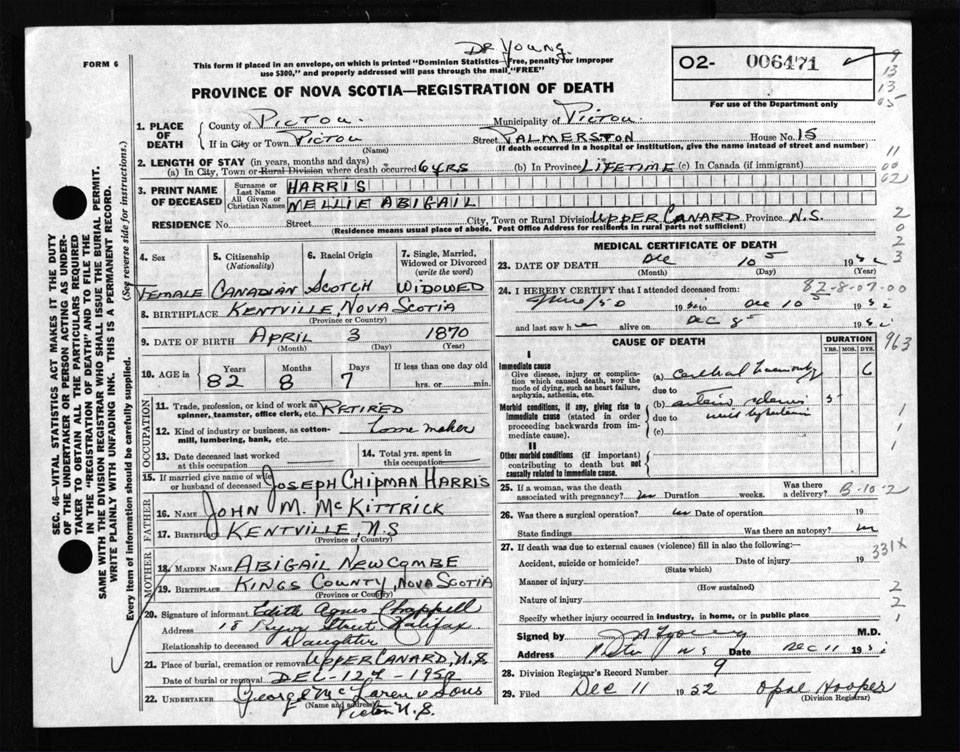 Dr Young.
FORM 6
This form if placed in an envelope, on which is printed "Dominion Statistics—Free, penalty for improper
use $300," and properly addressed will pass through the mail "FREE"
O2- 006471
For use of the Department only
PROVINCE OF NOVA SCOTIA—REGISTRATION OF DEATH
SEC. 46—VITAL STATISTICS ACT MAKES IT THE DUTY
OF THE UNDERTAKER OR PERSON ACTING AS UNDER-
TAKER TO OBTAIN ALL THE PARTICULARS REQUIRED
IN THE "REGISTRATION OF DEATH" AND TO FILE THE
SAME WITH THE DIVISION REGISTRAR WHO SHALL ISSUE THE BURIAL PERMIT.
WRITE PLAINLY WITH UNFADING INK. THIS IS A PERMANENT RECORD.
Every item of information should be carefully supplied. (See reverse side for instructions.)
1. PLACE OF DEATH
County of PICTOU. Municipality of PICTOU.
If in City or Town PICTOU Street PALMERSTON House No. 15
(Name) (If death occurred in a hospital or institution, give the name instead of street and number)
2. LENGTH OF STAY (in years, months and days)
(a) In City, Town or Rural Division where death occurred 6 yrs (b) In Province LIFETIME (c) In Canada (if immigrant)
3. PRINT NAME OF DECEASED
Surname or Last Name HARRIS
All Given or Christian Names NELLIE ABIGAIL
RESIDENCE No. Street City, Town or Rural Division UPPER CANARD Province N.S.
(Residence means usual place of abode. Post Office Address for residents in rural parts not sufficient)
4. Sex 5. Citizenship (Nationality) 6. Racial Origin 7. Single, Married, Widowed or Divorced (write the word)
FEMALE CANADIAN SCOTCH WIDOWED
8. BIRTHPLACE KENTVILLE, NOVA SCOTIA
(Province or Country)
9. DATE OF BIRTH APRIL 3 1870
(Month) (Day) (Year)
10. AGE in Years Months Days If less than one day old
82 8 7 hrs. or min.
OCCUPATION
11. Trade, profession, or kind of work as spinner, teamster, office clerk, etc. RETIRED
12. Kind of industry or business, as cotton-mill, lumbering, bank, etc. Home maker
13. Date deceased last worked at this occupation
14. Total yrs. spent in this occupation
15. If married give name of wife or husband of deceased JOSEPH CHIPMAN HARRIS
FATHER
16. NAME JOHN M. MCKITTRICK
17. BIRTHPLACE KENTVILLE N.S
(Province or Country)
MOTHER
18. MAIDEN NAME ABIGAIL NEWCOMBE
19. BIRTHPLACE KINGS COUNTY, NOVA SCOTIA
(Province or Country)
20. Signature of informant Edith Agnes Chappell
Address 18 Street Halifax
Relationship to deceased Daughter
21. Place of burial, cremation or removal UPPER CANARD, N.S.
Date of burial or removal DEC - 12th - 1952
22. UNDERTAKER George McLaren & Sons
(Name and address) Pictou N.S.
MEDICAL CERTIFICATE OF DEATH
23. DATE OF DEATH Dec 10th 1952
(Month) (Day) (Year)
82-8-07-00
24. I HEREBY CERTIFY that I attended deceased from:
19 to Dec 10th 1952
and last saw her alive on Dec 8th 1952
CAUSE OF DEATH DURATION
YRS. MOS. DYS.
I
Immediate cause
Give disease, injury or complication which caused death, NOT the mode of dying, such as heart failure, asphyxia, asthenia, etc.
(a) Cerebral 6
due to
Morbid conditions, if any, giving rise to immediate cause (stated in order proceeding backwards from immediate cause).
(b) 5
due to
(c)
II
Other morbid conditions (if important) contributing to death but not causally related to immediate cause.
25. If a woman, was the death associated with pregnancy? no Duration weeks. Was there a delivery? B-10-2
26. Was there a surgical operation? no Date of operation 19
State findings Was there an autopsy? no
27. If death was due to external causes (violence) fill in also the following:—
Accident, suicide or homicide? Date of injury 19
(State which)
331X
Manner of injury
(How sustained)
Nature of injury
Specify whether injury occurred in industry, in home, or in public place
Signed by M.D.
Address N S Date Dec 11 1952
28. Division Registrar's Record Number 9
29. Filed Dec 11 1952 Opal Hooper
(Division Registrar)
9
13
13
05
11
00
02
2
0
2
3
963
1
1
1
2
2
1